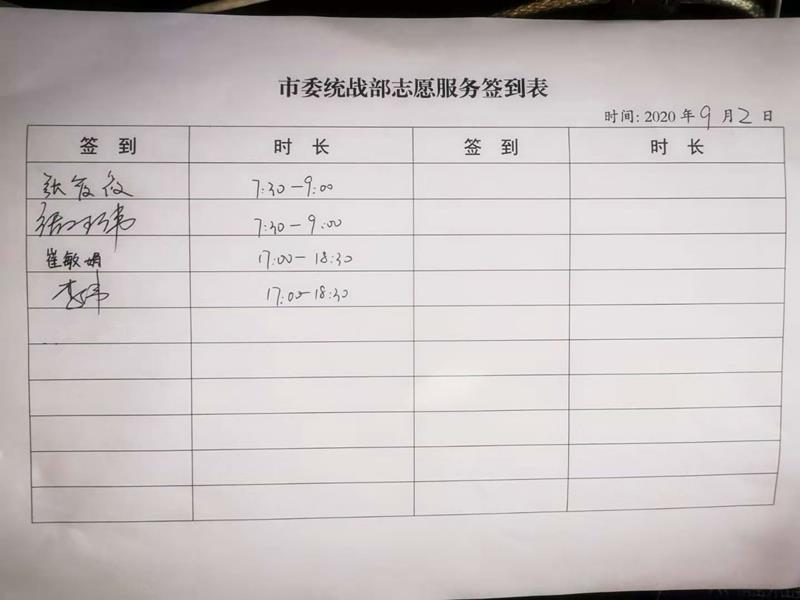 市委统战部志愿服务签到表
时间: 2020 年 9 月 2 日
签 到 时 长 签 到 时 长
张 7:30-9:00
7:30-9:00
崔敏娟 17:00-18:30
李玮 17:00-18:30